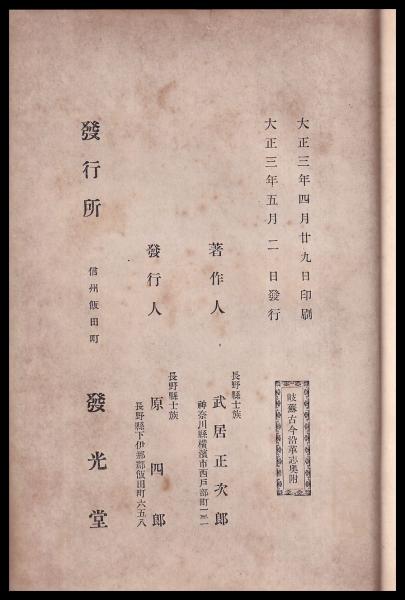 大正三年四月廿九日印刷
大正三年五月二日發行
岐蘇古今沿革志奧附
著作人
長野縣士族
武居正次郎
神奈川縣橫濱市西戶部町一三二
發行人
長野縣士族
原四郎
長野縣下伊那郡飯田町六五八
發行所
信州飯田町
發光堂